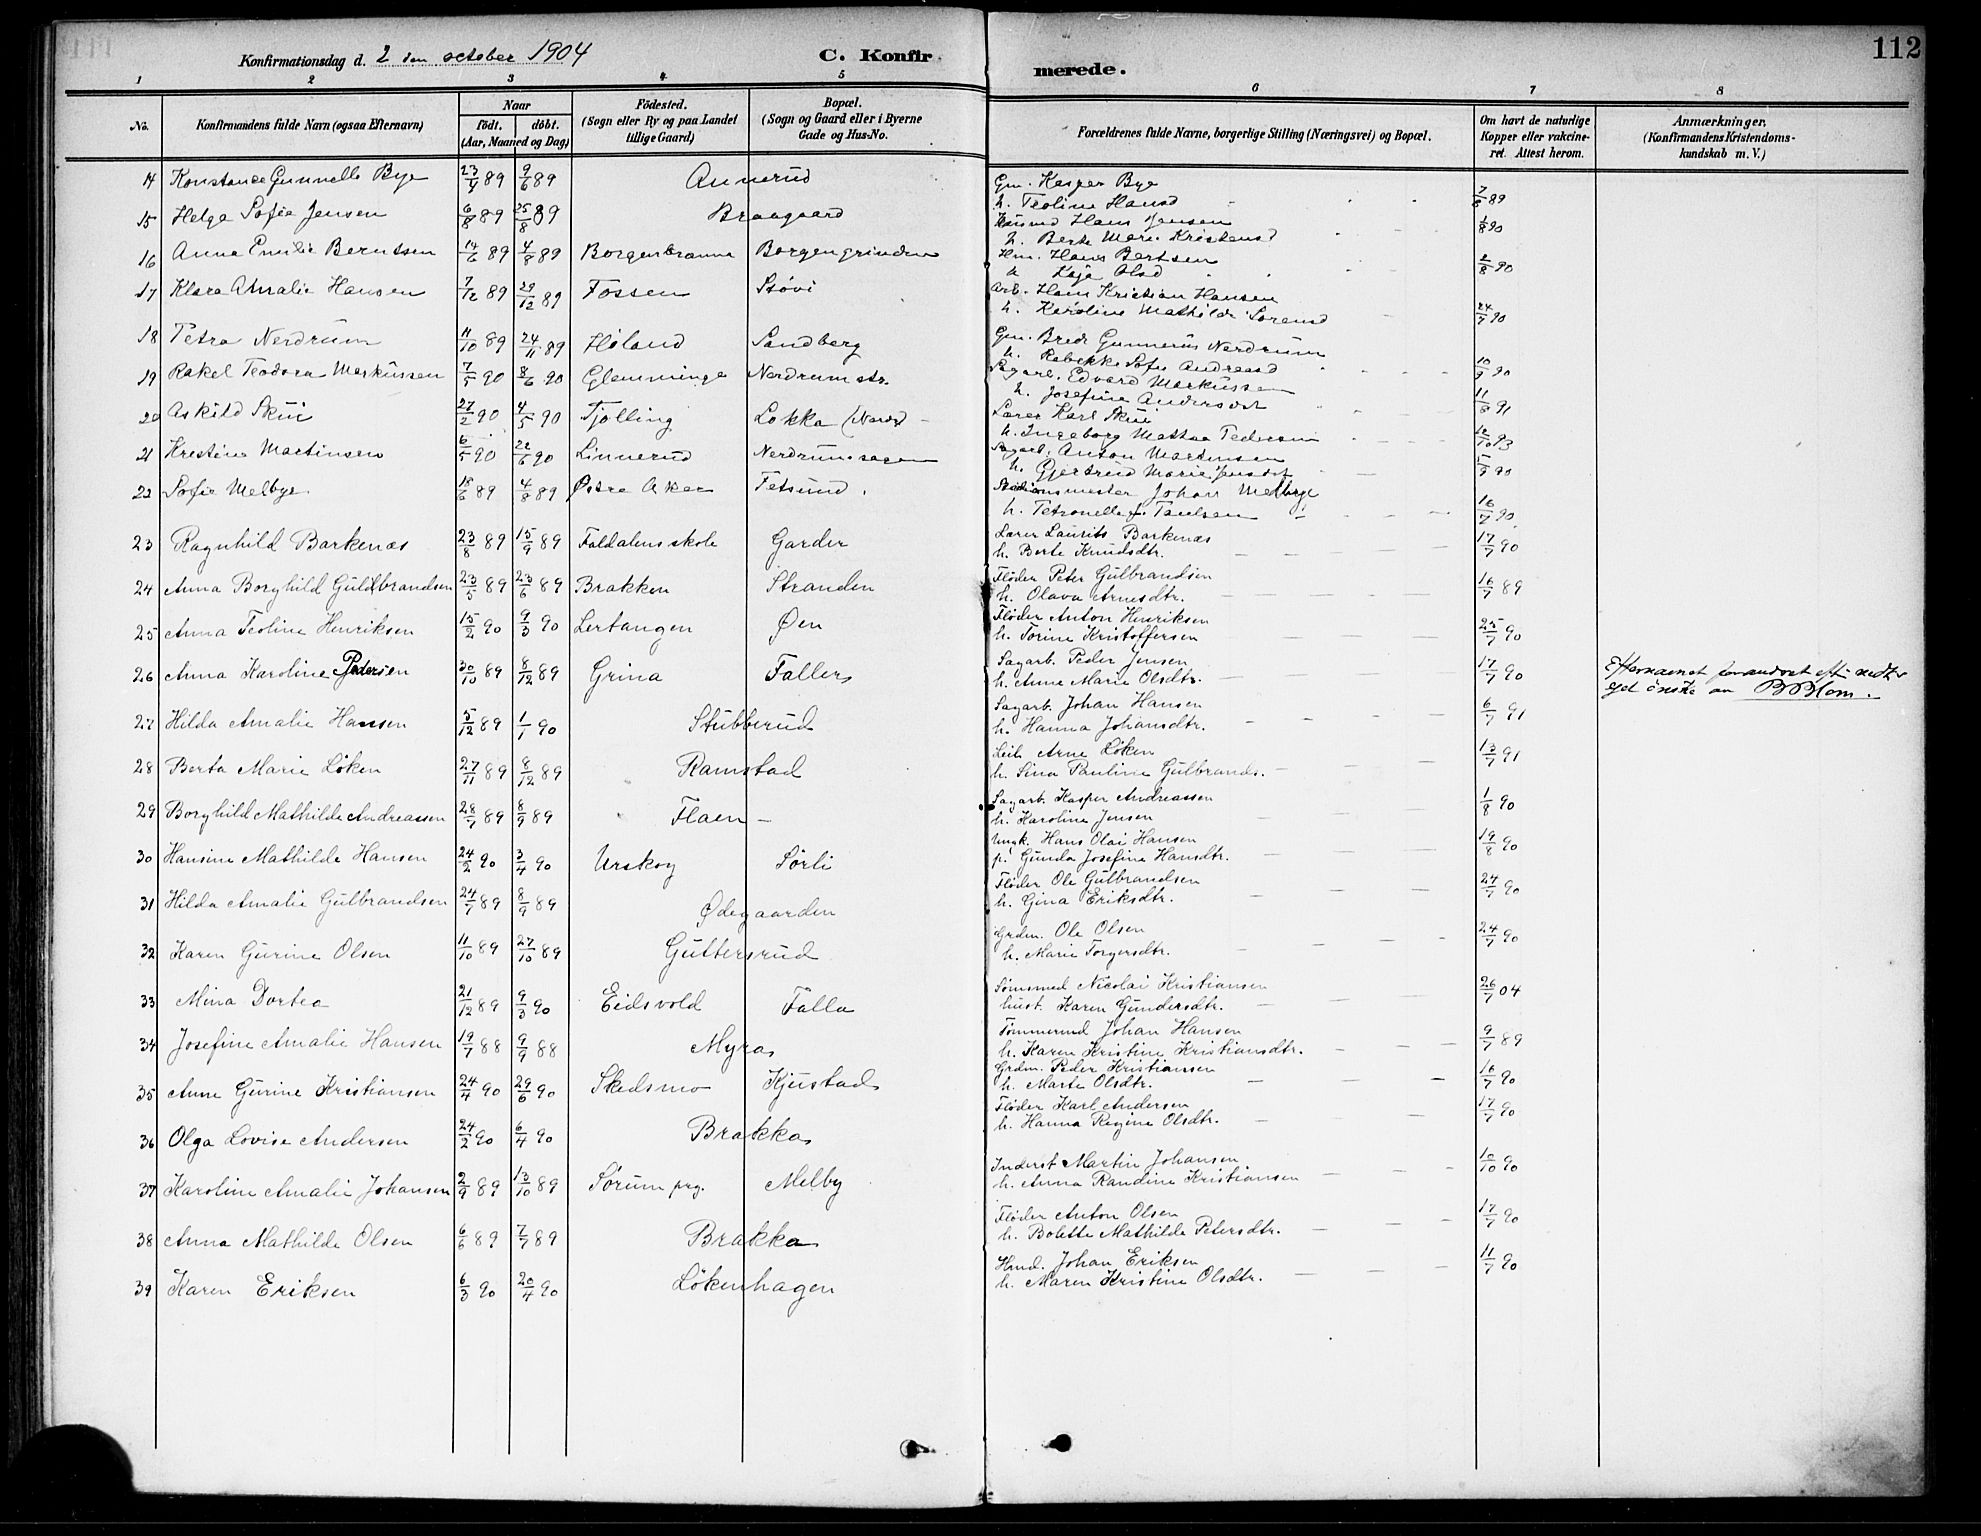 112
Konfirmationsdag d. 2 den october 1904
C. Konfirmerede.
1 2 3 4 5 6 7 8
No. Konfirmandens fulde Navn (ogsaa Efternavn) Naar födt. döbt. (Aar, Maaned og Dag) Födested. (Sogn eller By og paa Landet tillige Gaard) Bopæl. (Sogn og Gaard eller i Byerne Gade og Hus-No. Forældrenes fulde Navne, borgerlige Stilling (Næringsvei) og Bopæl. Om havt de naturlige Kopper eller vakcineret. Attest herom. Anmærkninger. (Konfirmandens Kristendomskundskab m. V.)
14 Konstance Gunnelle Bye 23/4 89 9/6 89 Annerud Gm. Kasper Bye
h. Teoline Hansd 7/8 89
15 Helga Sofie Jensen 6/8 89 25/8 89 Braagaard Husmd Hans Jensen
h. Berte Marie Kristensd 1/8 90
16 Anna Emilie Berntsen 14/6 89 4/8 89 Borgenbraana Borgengrinden Hm. Hans Bertsen
h. Kaja Olsd 2/8 90
17 Klara Amalie Hansen 7/12 89 29/12 89 Fossen Støvi Arb. Hans Kristian Hansen
h. Karoline Mathilde Sørensd 24/7 90
18 Petra Nerdrum 11/10 89 24/11 89 Høland Sandberg Gm. Brede Gunnerius Nerdrum
h. Rebekka Sofie Andreasd 10/9 90
19 Rakel Teodora Markussen 7/5 90 8/6 90 Glemminge Nerdrum str. Sagarb. Edvard Markussen
h. Josefine Andersdt 11/8 91
20 Askild Skui 27/2 90 4/5 90 Tjølling Løkka (Nerdr) Lærer Karl Skui
h. Ingeborg Mathea Pedersen 12/10 93
21 Kristine Martinsen 6/5 90 22/6 90 Linnerud Nerdrumsagen Sagarb. Anton Martinsen
h. Gjertrud Marie Jensdt 5/9 90
22 Sofie Melbye 18/6 89 4/8 89 Østre Aker Fetsund. Stationsmester Johan Melbye
h. Petronelle f. Paulsen 16/7 90
23 Ragnhild Barkenæs 23/8 89 15/9 89 Faldalens skole Garder Lærer Laurits Barkenæs
h. Berte Knudsdtr. 17/7 90
24 Anna Borghild Guldbrandsen 23/5 89 23/6 89 Brakken Stranden Fløder Peter Gulbrandsen
h. Olava Arnesdtr. 16/7 89
25 Anna Teoline Henriksen 15/2 90 9/3 90 Lertangen Øen Fløder Anton Henriksen
h. Torine Kristoffersen 25/7 90
26 Anna Karoline Pedersen 30/10 89 8/12 89 Grina Faller Sagarb. Peder Jensen
h. Anne Marie Olsdtr. 17/7 90 Efternavnet forandret efter
eget ønske av BBlom.
27 Hilda Amalie Hansen 5/12 89 1/1 90 Stubberud Sagarb. Johan Hansen
h. Hanna Johansdtr. 6/7 91
28 Berta Marie Løken 27/11 89 8/12 89 Ramstad Leil. Arne Løken
h. Lina Pauline Gulbrands. 13/7 91
29 Borghild Mathilde Andreassen 28/7 89 8/9 89 Flaen Sagarb. Kasper Andreassen
h. Karoline Jensen 1/8 90
30 Hansine Mathilde Hansen 24/2 90 3/4 90 Urskog Sørli Ungk. Hans Olai Hansen
p. Gunda Josefine Hansdtr. 19/8 90
31 Hilda Amalie Gulbrandsen 24/7 89 8/9 89 Ødegaarden Fløder Ole Gulbrandsen
h. Gina Eriksdtr. 24/7 90
32 Karen Gurine Olsen 11/10 89 27/10 89 Guttersrud Grdm. Ole Olsen
h. Marie Torgersdtr. 24/7 90
33 Mina Dortea 21/12 89 9/3 90 Eidsvold Falla Nicolai Kristiansen
hust. Karen Gundersdtr. 26/7 04
34 Josefine Amalie Hansen 19/7 88 9/9 88 Myra Tømmermd Johan Hansen
h. Karen Kristine Kristiansdtr. 9/7 89
35 Anne Gurine Kristiansen 24/4 90 29/6 90 Skedsmo Kjustad Grdm. Peder Kristiansen
h. Marte Olsdtr. 16/7 90
36 Olga Lovise Andersen 24/2 90 6/4 90 Brakka Fløder Karl Andersen
h. Hanna Regine Olsdtr. 17/7 90
37 Karoline Amalie Johansen 2/9 89 13/10 89 Sørum prg. Melby Inderst Martin Johansen
h. Anna Randine Kristiansen 10/10 90
38 Anna Mathilde Olsen 6/6 89 7/7 89 Brakka Fløder Anton Olsen
h. Bolette Mathilde Petersdtr. 17/7 90
39 Karen Eriksen 6/3 90 20/4 90 Løkenhagen Hmd. Johan Eriksen
h. Maren Kristine Olsdtr. 11/7 90